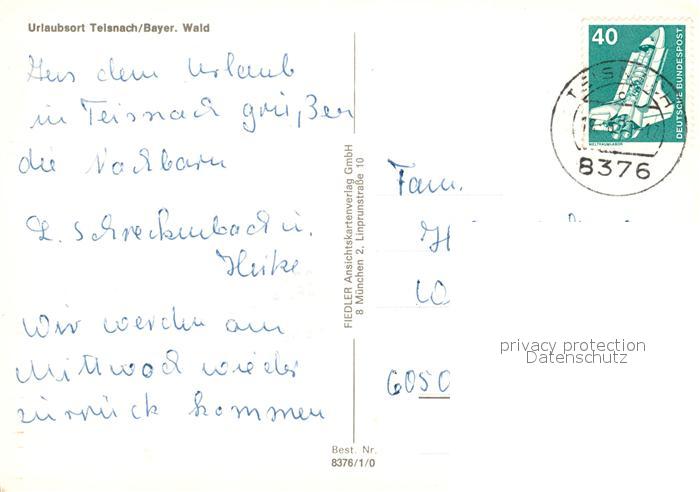 Urlaubsort Teisnach/Bayer. Wald
Aus dem Urlaub
in Teisnach grüßen
die Nachbarn
L. Schreckenbach u.
Heike
Wir werden am
Mittwoch wieder
zurück kommen
FIEDLER Ansichtskartenverlag GmbH
8 München 2, Linprunstraße 10
Best. Nr.
8376/1/0
40
DEUTSCHE BUNDESPOST
WELTRAUMLABOR
8376
Fam.
H
6050
privacy protection
Datenschutz